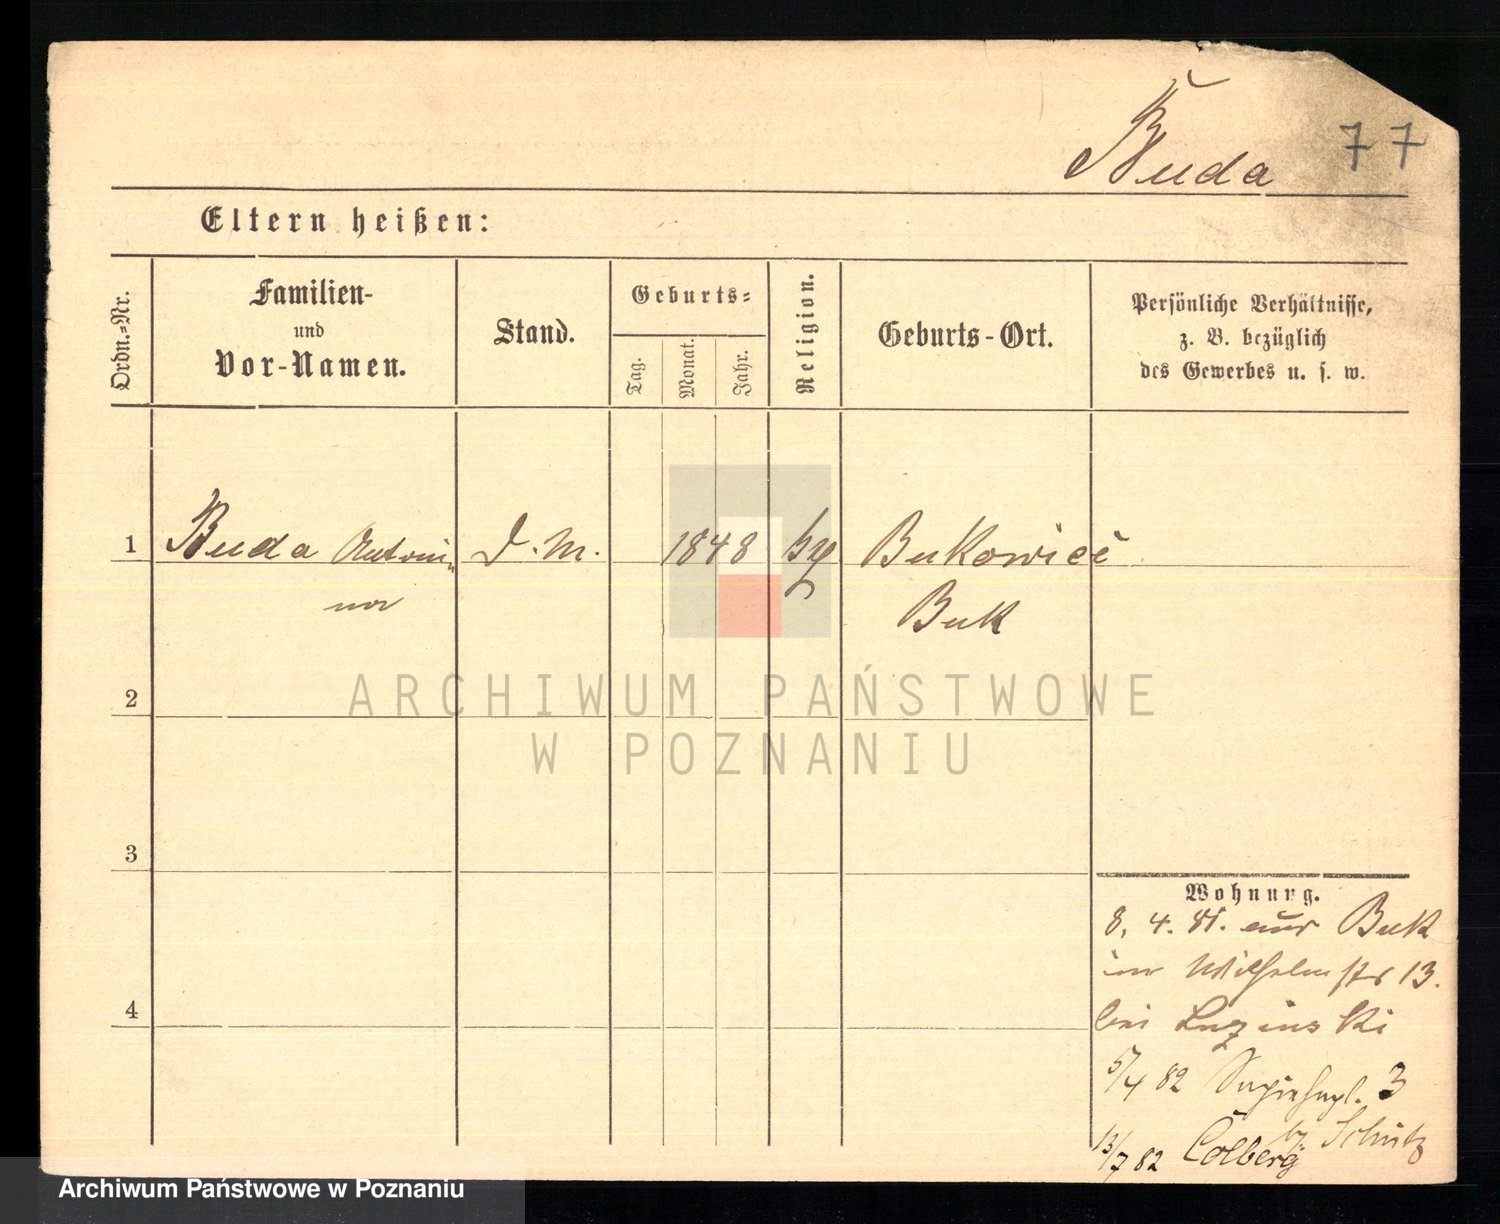 Buda
77
Eltern heißen:
Ordn.-Nr.
Familien-
und
Vor-Namen.
Stand.
Geburts-
Tag.
Monat.
Jahr.
Religion.
Geburts-Ort.
Persönliche Verhältnisse,
z. B. bezüglich
des Gewerbes u. s. w.
1 Buda Antoni- D. M. 1848 Bukowiec
na Buk
2
ARCHIWUM PAŃSTWOWE
W POZNANIU
3
4
Wohnung.
8. 4. 81. aus Buk
in Wilhelmstr 13.
bei Luzinski
5/4 82 Sapiehapl. 3
bei Schütz
13/7 82 Colberg
Archiwum Państwowe w Poznaniu